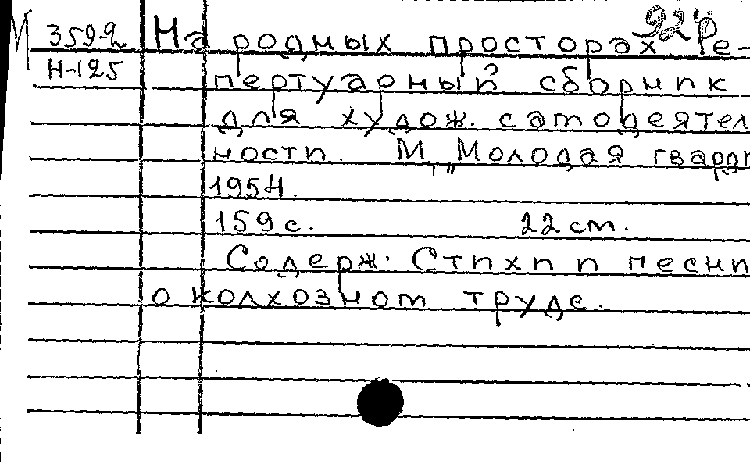 М 3592 На родных просторах Ре-
Н-125 пертуарный сборник
для худож. самодеятел
ности. М, „Молодая гвард
1954.
159 с. 22 см.
Содерж. Стихи и песни
о колхозном труде.